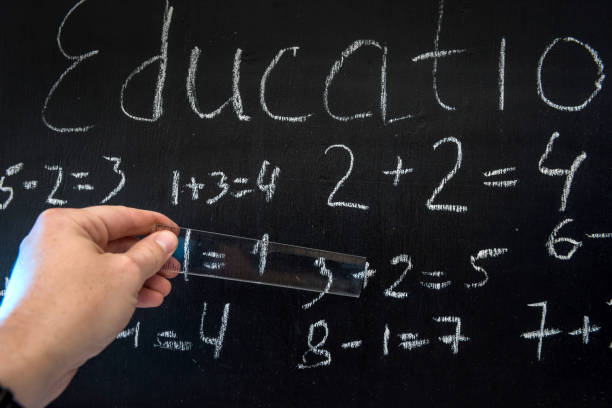 Educatio
5-2=3 1+3=4 2+2=4
1=1 3+2=5 6-
-1=4 8-1=7 7+